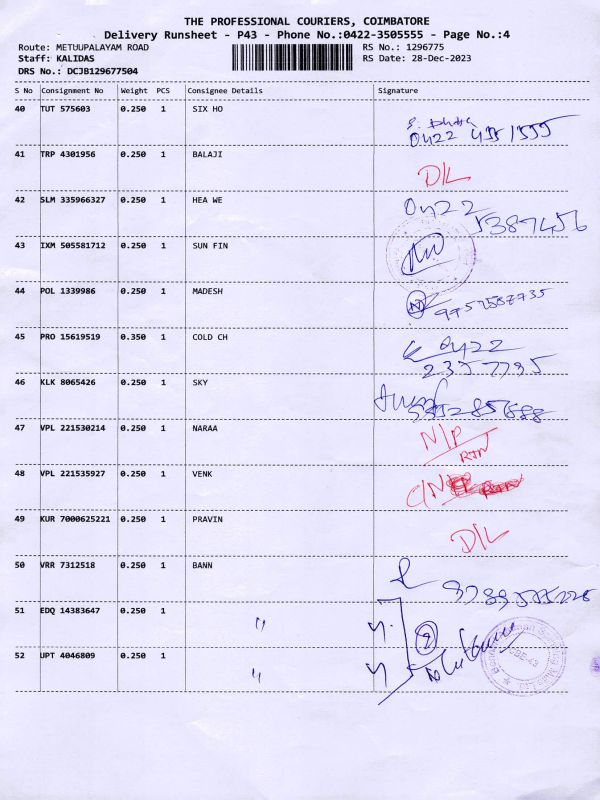 THE PROFESSIONAL COURIERS, COIMBATORE
Delivery Runsheet - P43 - Phone No.:0422-3505555 - Page No.:4
Route: METUUPALAYAM ROAD RS No.: 1296775
Staff: KALIDAS RS Date: 28-Dec-2023
DRS No.: DCJB129677504
S No Consignment No Weight PCS Consignee Details Signature
40 TUT 575603 0.250 1 SIX HO
0422
41 TRP 4301956 0.250 1 BALAJI
D/L
42 SLM 335966327 0.250 1 HEA WE 0422
5387456
43 IXM 505581712 0.250 1 SUN FIN
44 POL 1339986 0.250 1 MADESH
45 PRO 15619519 0.350 1 COLD CH 0422
46 KLK 8065426 0.250 1 SKY
47 VPL 221530214 0.250 1 NARAA N/P
RTN
48 VPL 221535927 0.250 1 VENK
49 KUR 7000625221 0.250 1 PRAVIN
D/L
50 VRR 7312518 0.250 1 BANN
51 EDQ 14383647 0.250 1 〃
52 UPT 4046809 0.250 1 〃